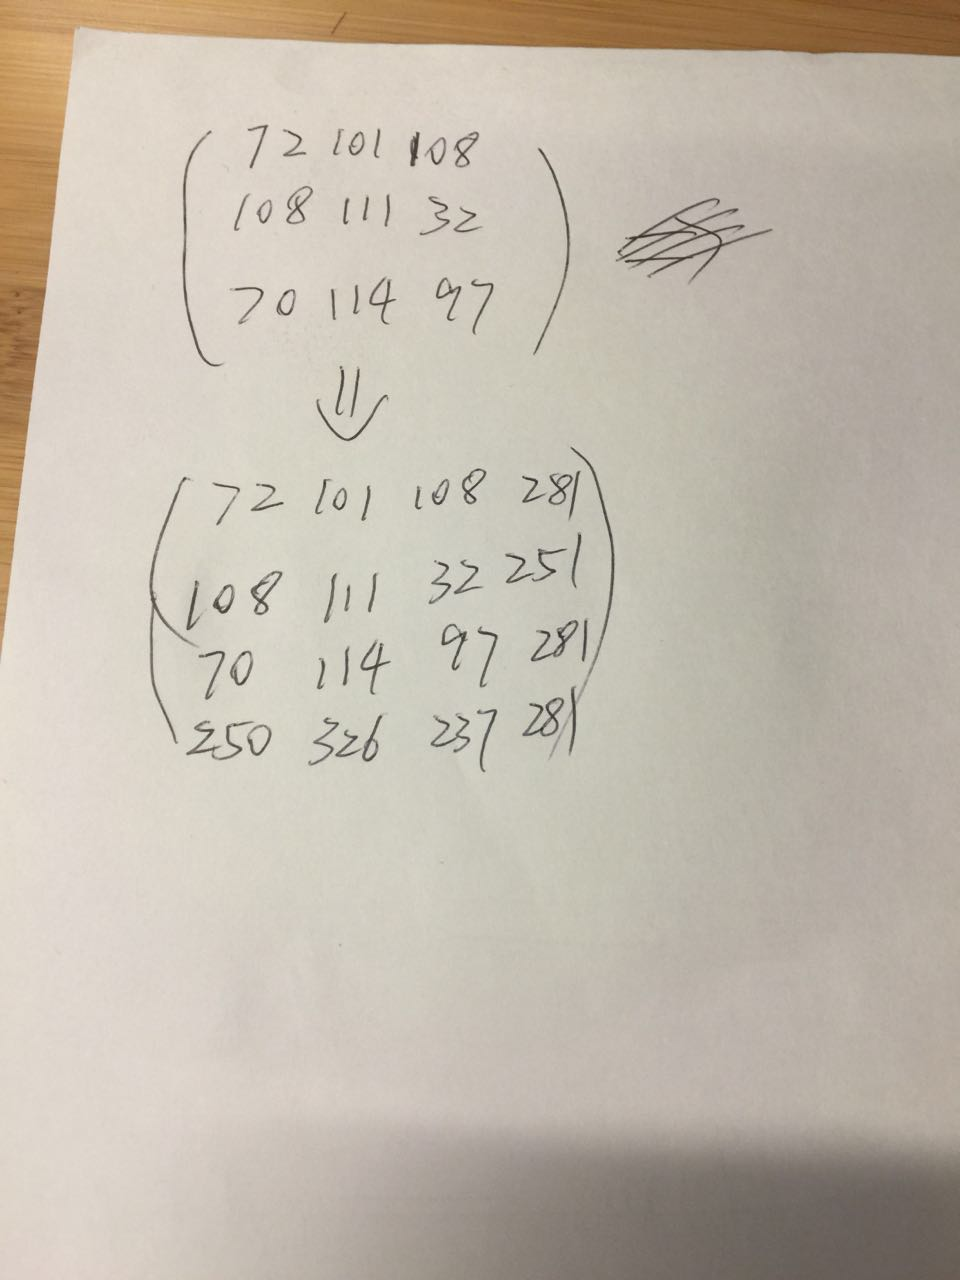 72 101 108
108 111 32
70 114 97
72 101 108 281
108 111 32 251
70 114 97 281
250 326 237 281